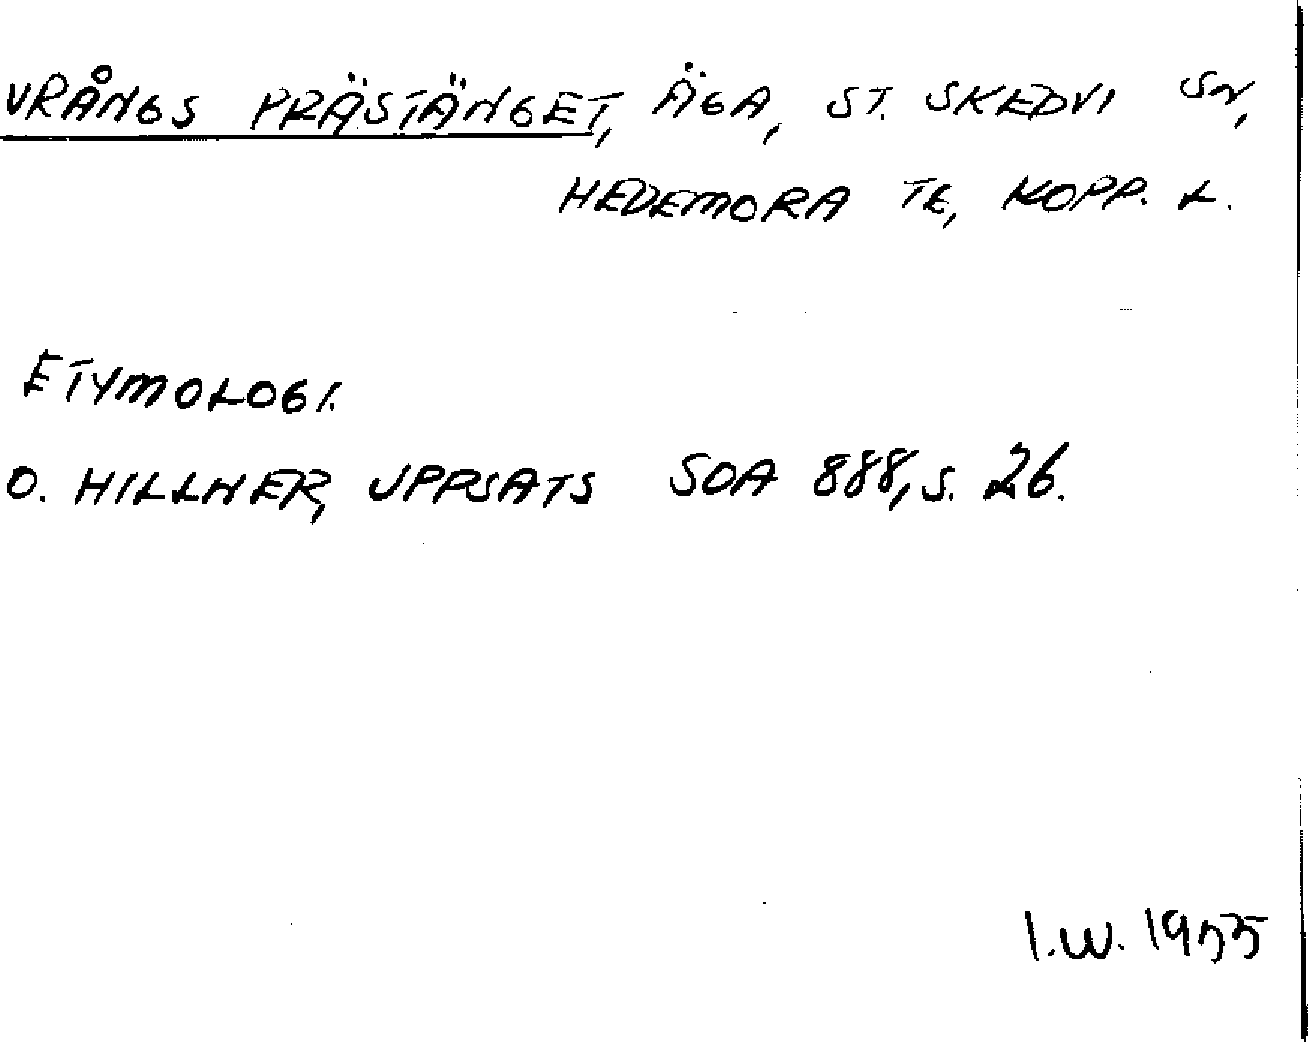 VRÅNGS PRÄSTÄNGET, ÄGA, ST. SKEDVI SN,
HEDEMORA TG, KOPP. L.
ETYMOLOGI.
O. HILLNER, UPPSATS SOA 888, S. 26.
I.W. 1955